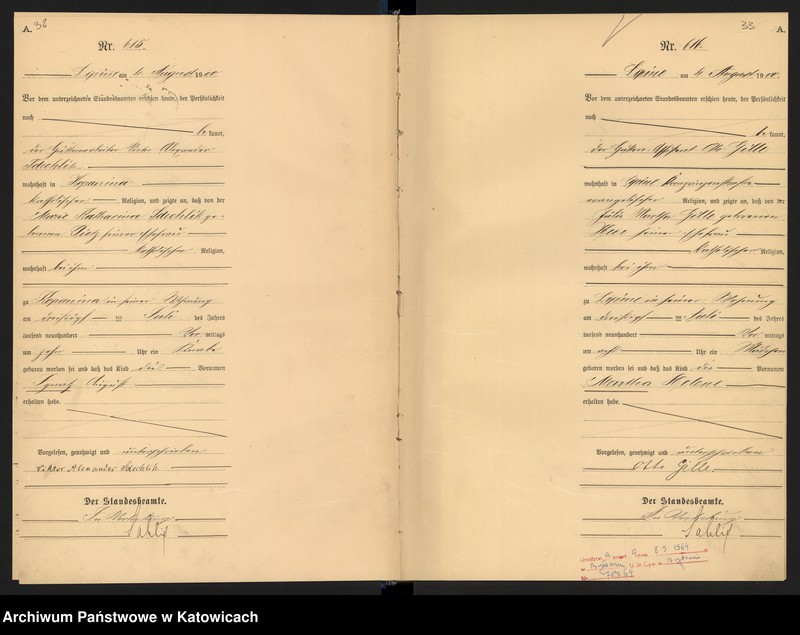 A. 38
Nr. 615.
Lipine am 4 August 1900
Vor dem unterzeichneten Standesbeamten erschien heute, der Persönlichkeit
nach
be kannt,
der Hüttenarbeiter Victor Alexander
Tdechlik
wohnhaft in Kopanina
katholischer Religion, und zeigte an, daß von der
Marie Katharina Sdechlik ge-
borenen seiner Ehefrau
katholischer Religion,
wohnhaft bei ihm
zu Kopanina in seiner Wohnung
am dreißigsten Juli des Jahres
tausend neunhundert Vor mittags
um zehn Uhr ein Knabe
geboren worden sei und daß das Kind die Vornamen
Ignatz August
erhalten habe.
Vorgelesen, genehmigt und unterschrieben
Viktor Alexander Sdechlik
Der Standesbeamte.
In Vertretung
Sahlig
33 A.
Nr. 616.
Lipine am 4 August 1900.
Vor dem unterzeichneten Standesbeamten erschien heute, der Persönlichkeit
nach
be kannt,
der Hütten-Assistent Otto Gille
wohnhaft in Lipine
evangelischer Religion, und zeigte an, daß von der
Martha Gille geborenen
seiner Ehefrau
katholischer Religion,
wohnhaft bei ihm
zu Lipine in seiner Wohnung
am dreißigsten Juli des Jahres
tausend neunhundert Vor mittags
um acht Uhr ein Mädchen
geboren worden sei und daß das Kind die Vornamen
Martha Helene
erhalten habe.
Vorgelesen, genehmigt und unterschrieben
Otto Gille.
Der Standesbeamte.
In Vertretung
Sahlig
1969
Archiwum Państwowe w Katowicach